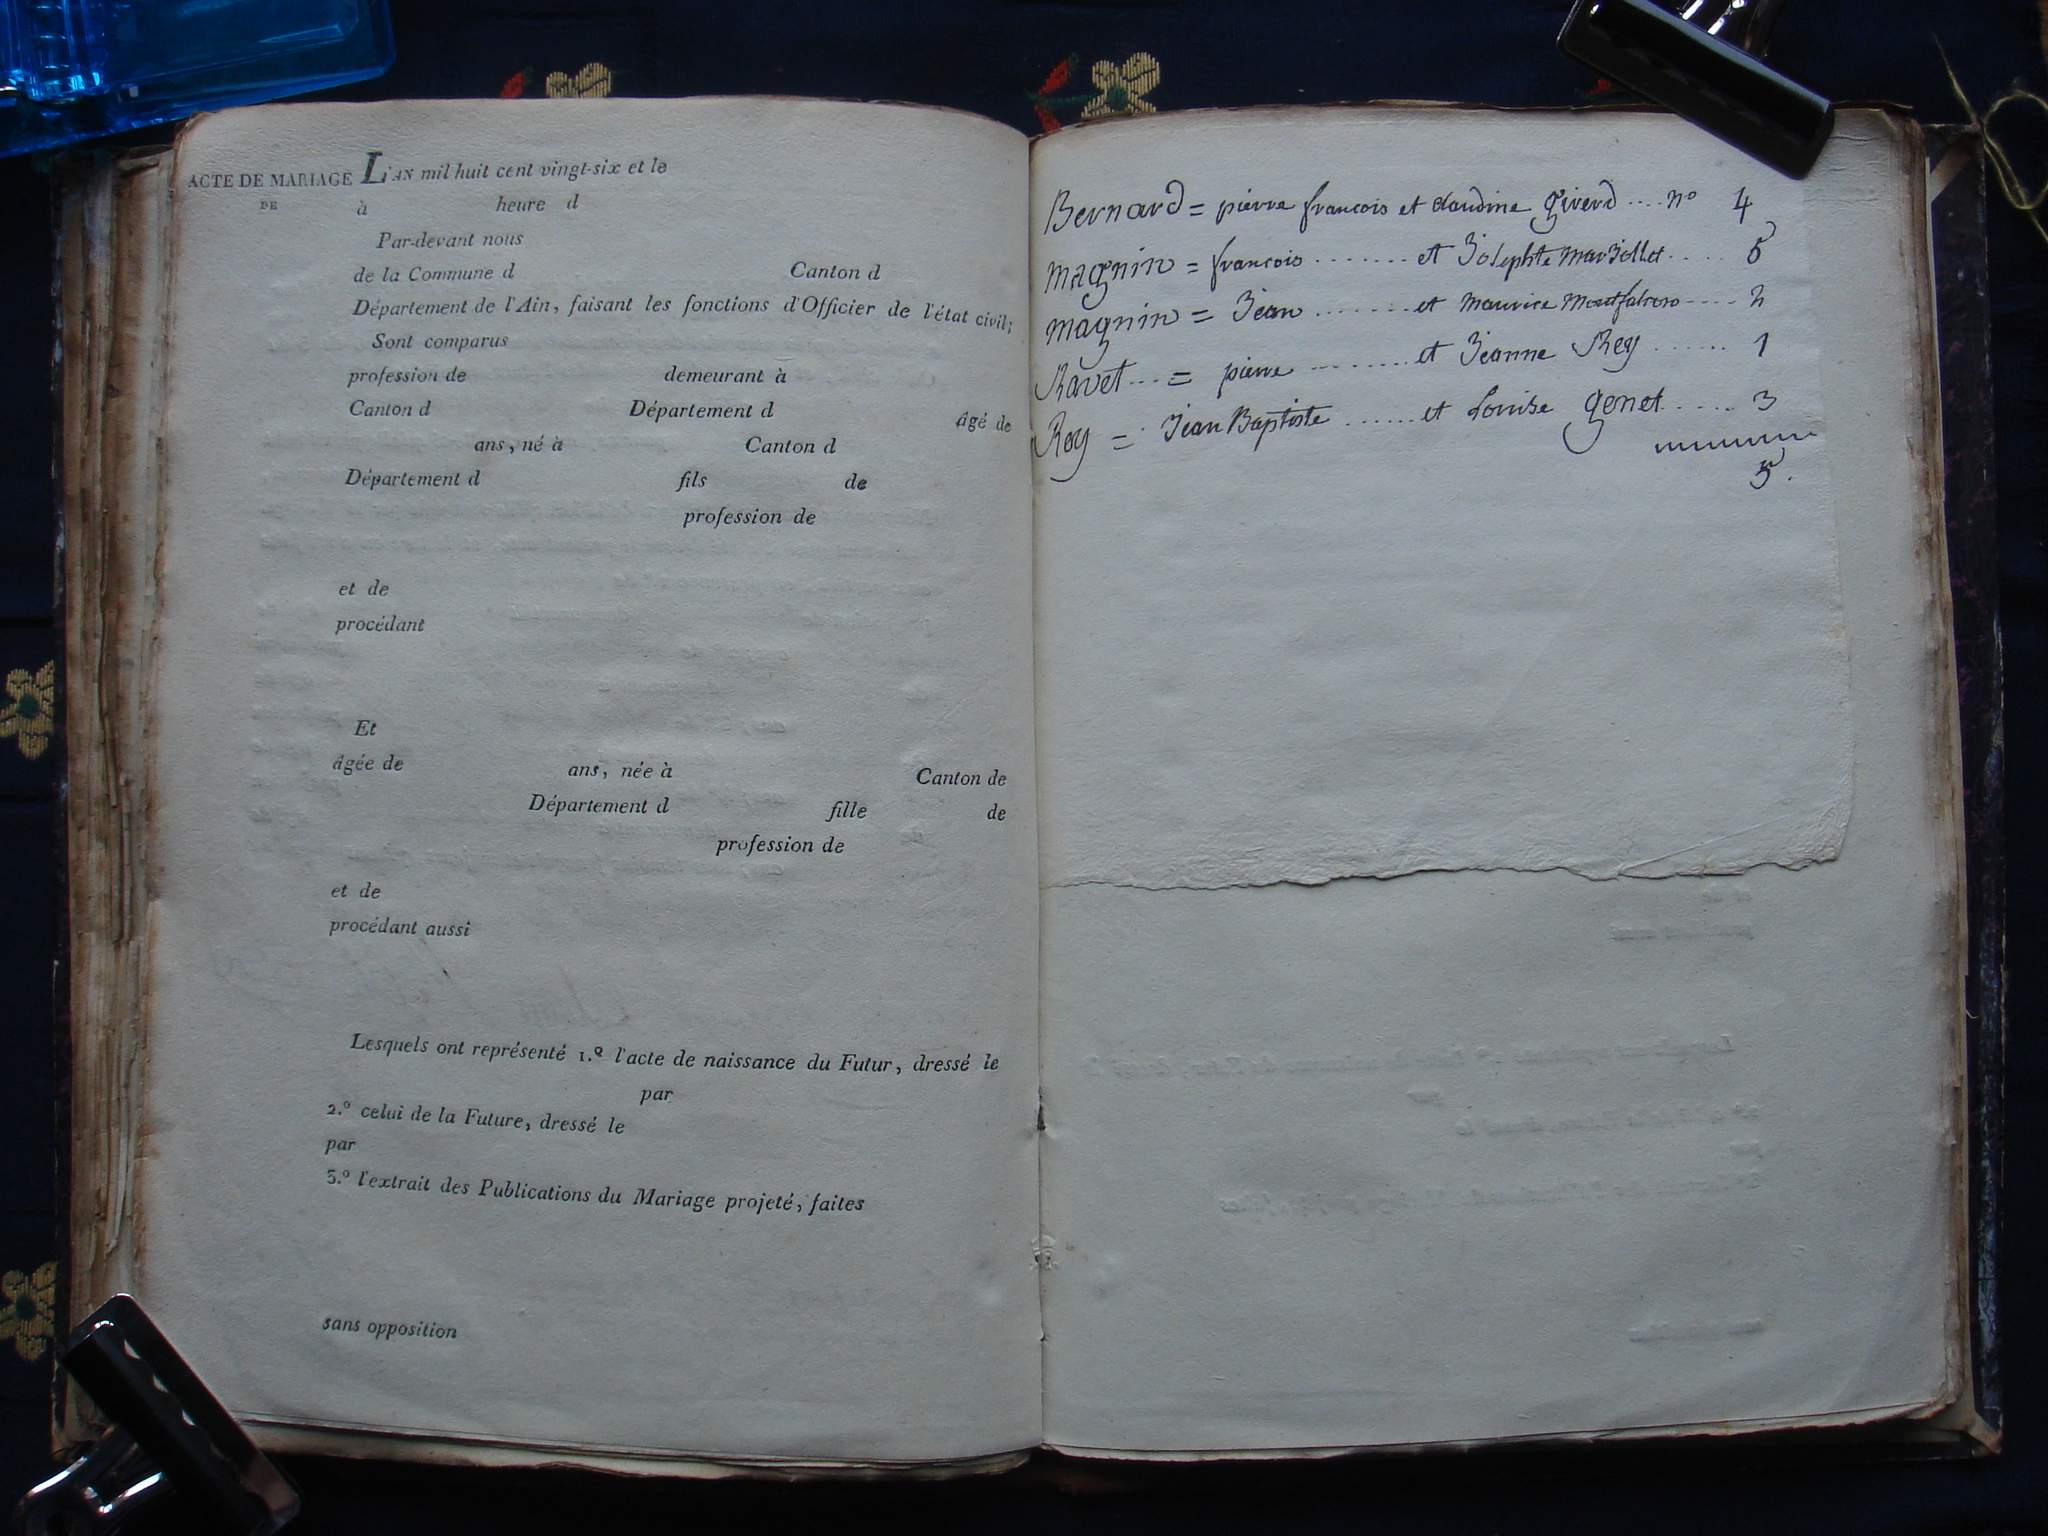 ACTE DE MARIAGE L'AN mil huit cent vingt-six et le
DE à heure d
Par-devant nous
de la Commune d Canton d
Département de l'Ain, faisant les fonctions d'Officier de l'état civil;
Sont comparus
profession de demeurant à
Canton d Département d âgé de
ans, né à Canton d
Département d fils de
profession de
et de
procédant
Et
âgée de ans, née à Canton de
Département d fille de
profession de
et de
procédant aussi
Lesquels ont représenté 1.º l'acte de naissance du Futur, dressé le
par
2.º celui de la Future, dressé le
par
3.º l'extrait des Publications du Mariage projeté, faites
sans opposition
Bernard = pierre francois et claudine giverd .... nº 4
magnin = francois ....... et Josephte marjollet ..... 5
magnin = Jean ....... et maurice ..... 2
Ravet ... = pierre ........ et Jeanne Rey ...... 1
Rey = Jean Baptiste ...... et Louise genet ..... 3
5.